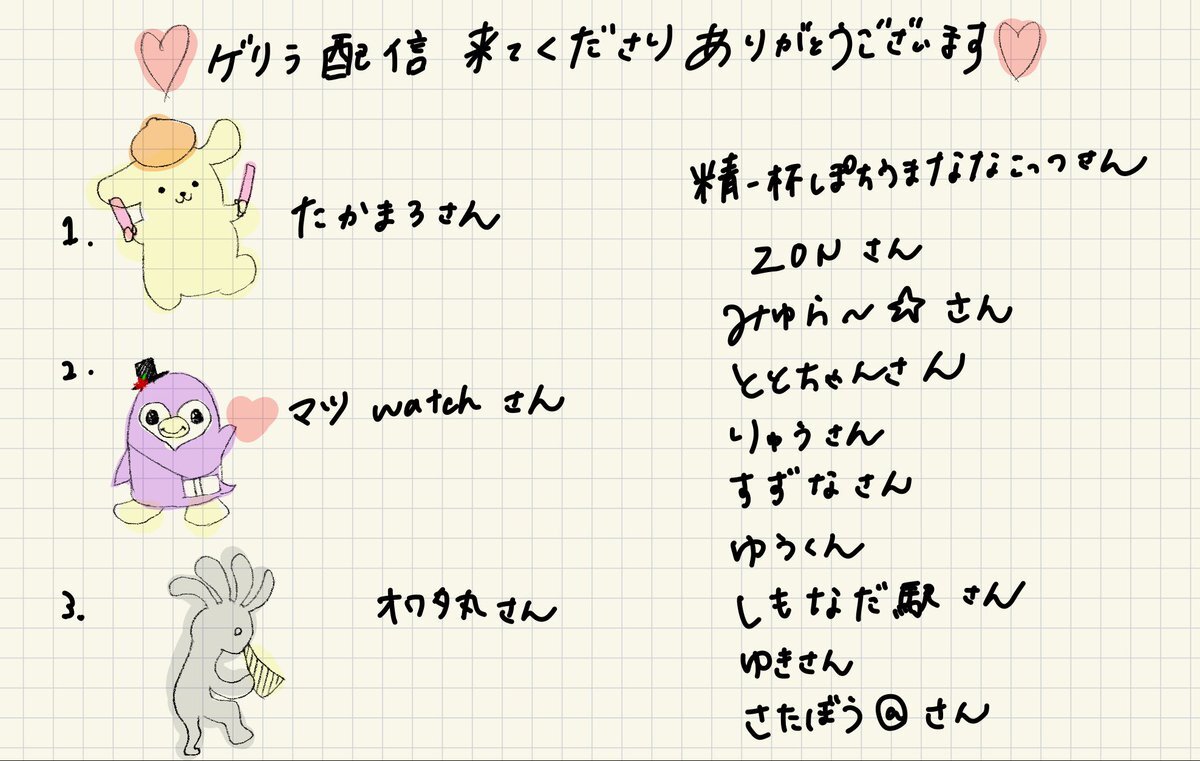 ゲリラ配信 来てくださりありがとうございます
1. たかまろさん
2. マツ watch さん
3. オワタ丸さん
精一杯ぽちうまななこっつさん
ZON さん
みゅら〜☆ さん
ととちゃんさん
りゅうさん
すずなさん
ゆうくん
しもなだ駅 さん
ゆきさん
さたぼう@さん